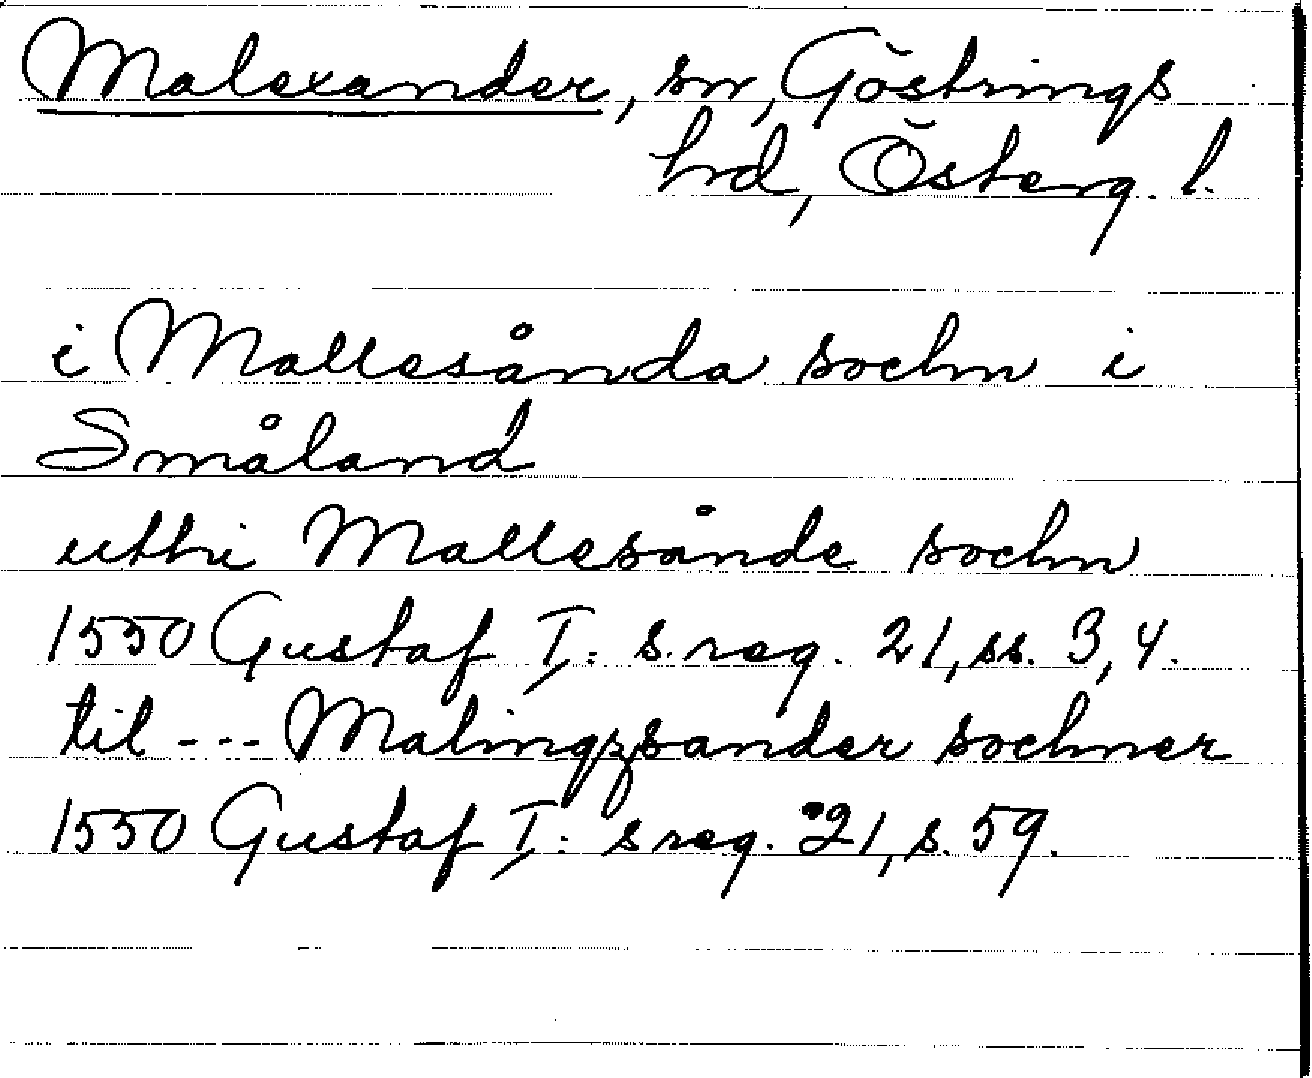 Malexander, sn, Göstrings
hrd, Österg. l.
i Mallesånda sochn i
Småland
uthi Mallesånde sochn
1550 Gustaf I: s. reg. 21, ss. 3, 4.
til --- Malingzsander sochner
1550 Gustaf I: s reg. 21, s. 59.